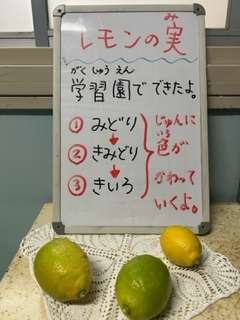 レモンの実
み
がくしゅうえん
学習園でできたよ。
① みどり
② きみどり
③ きいろ
じゅんに
いろ
色が
かわって
いくよ。